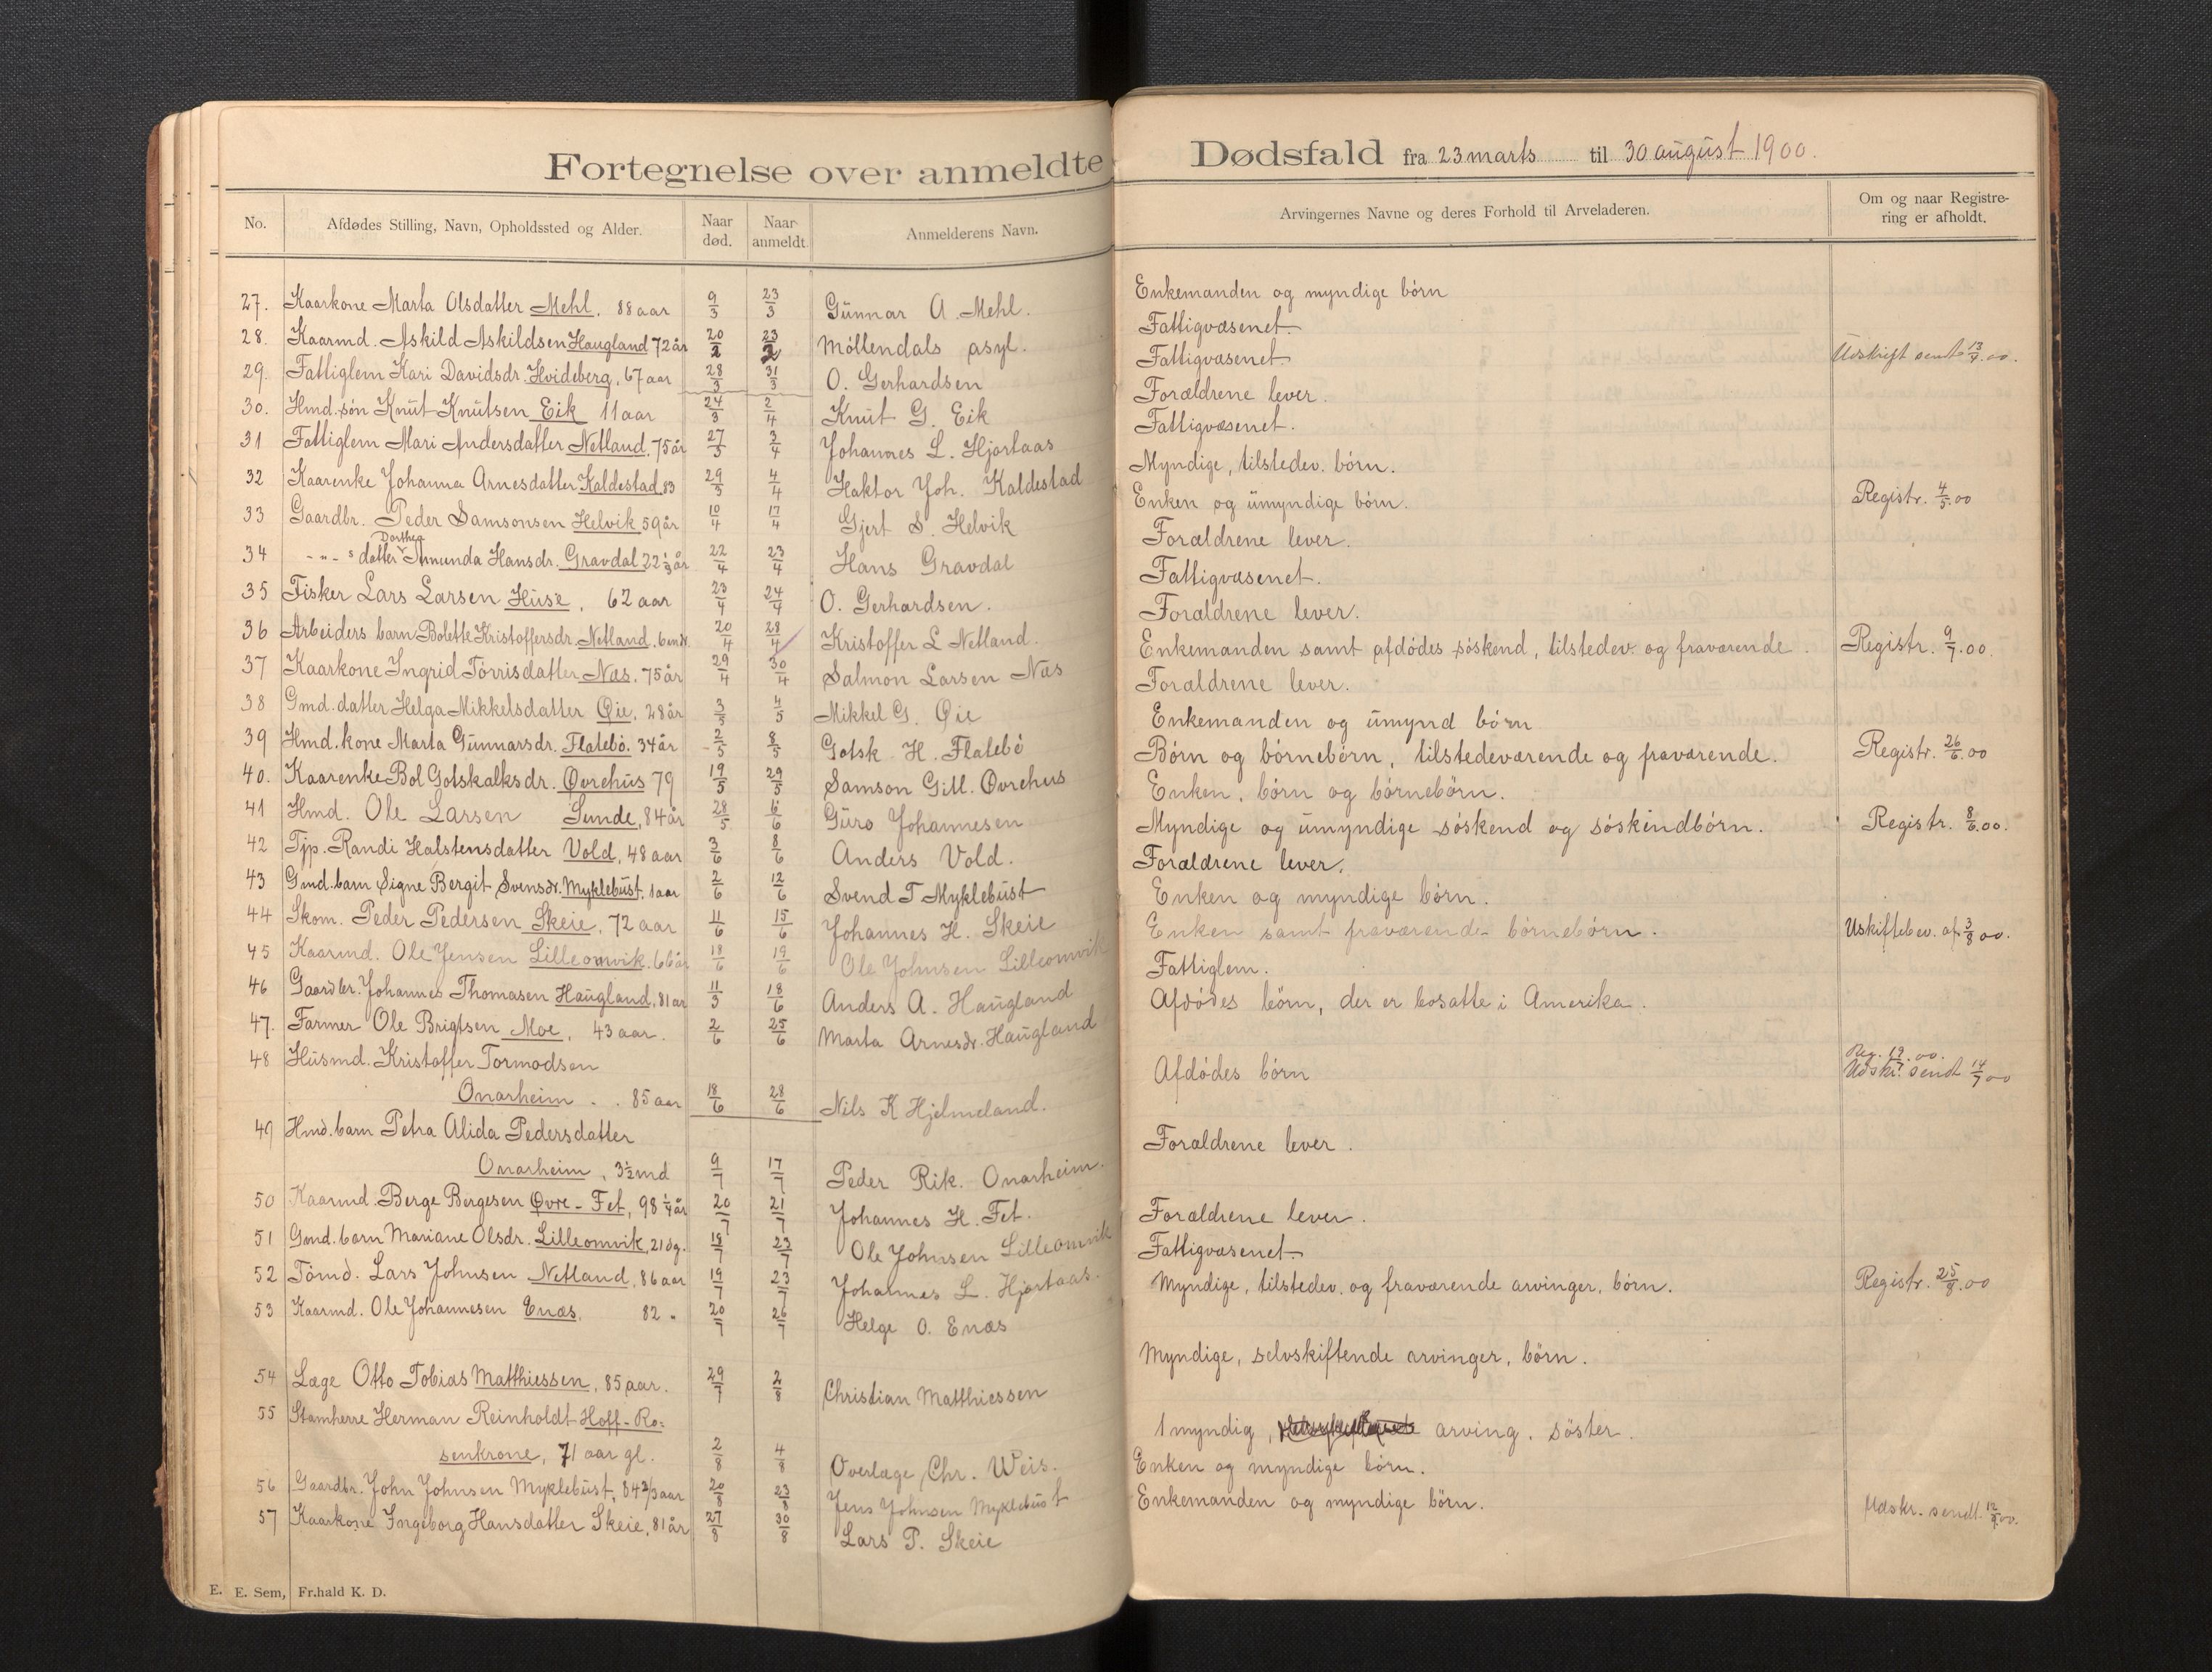 Fortegnelse over anmeldte Dødsfald fra 23 marts til 30 august 1900.
No. Afdødes Stilling, Navn, Opholdssted og Alder. Naar død. Naar anmeldt. Anmelderens Navn. Arvingernes Navne og deres Forhold til Arveladeren. Om og naar Registrering er afholdt.
27. Kaarkone Marta Olsdatter Mehl. 88 aar 9/3 23/3 Gunnar A. Mehl. Enkemanden og myndige börn
28. Kaarmd. Askild Askildsen Haugland 72 år 20/2 23/2 Möllendals asyl. Fattigvæsenet.
29. Fattiglem Kari Davidsdr. Hvideberg, 67 aar 28/3 31/3 O. Gerhardsen Fattigvæsenet Udskrift sendt 13/7.00.
30. Hmd. søn Knut Knutsen Eik 11 aar 24/3 2/4 Knut G. Eik Forældrene lever.
31 Fattiglem Mari Andersdatter Netland. 75 år 27/3 3/4 Johannes L. Hjortaas Fattigvæsenet.
32 Kaarenke Johanna Arnesdatter Kaldestad 83 29/3 4/4 Haktor Joh. Kaldestad Myndige, tilstedev. börn.
33 Gaardbr. Peder Samsonsen Helvik 59 år 10/4 17/4 Gjert S. Helvik Enken og umyndige börn. Registr. 4/5.00
34 - " - s datter Dorthea Amunda Hansdr. Gravdal 22 1/3 år 22/4 23/4 Hans Gravdal Forældrene lever.
35 Fisker Lars Larsen Huse, 62 aar 23/4 24/4 O. Gerhardsen. Fattigvæsenet.
36 Arbeiders barn Bolette Kristoffersdr. Netland. 6 mdr. 20/4 28/4 Kristoffer L Netland. Forældrene lever.
37 Kaarkone Ingrid Tørrisdatter Næs. 75 år 29/4 30/4 Salmon Larsen Næs Enkemanden samt afdödes söskend, tilstedev. og fraværende. Registr. 9/7.00.
38 Gmd. datter Helga Mikkelsdatter Øie, 28 år 3/5 4/5 Mikkel G. Øie Forældrene lever.
39 Hmd. kone Marta Gunnarsdr. Flatebö. 34 år 2/5 8/5 Gotsk. H. Flatebö Enkemanden og umynd börn
40. Kaarenke Bol Gotskalksdr. Øvrehus 79 19/5 29/5 Samson Gitl. Øvrehus Börn og börnebörn, tilstedeværende og fraværende. Registr. 26/6.00
41 Hmd. Ole Larsen Sunde, 84 år 28/5 6/6 Guro Johannesen Enken, börn og börnebörn.
42 Tjp. Randi Halstensdatter Vold, 48 aar 3/6 8/6 Anders Vold. Myndige og umyndige söskend og söskendbörn. Registr. 8/6.00.
43 Gmd. barn Signe Bergit Svensdr. Myklebust. 1 aar 2/6 12/6 Svend T Myklebust Forældrene lever.
44 Skom. Peder Pedersen Skeie, 72 aar 11/6 15/6 Johannes H. Skeie Enken og myndige börn.
45 Kaarmd. Ole Jensen Lilleomvik. 66 år 18/6 19/6 Ole Johnsen Lilleomvik Enken samt fraværende börnebörn. Uskiftebev. af 3/8 00.
46 Gaardbr. Johannes Thomasen Haugland, 81 ar 11/3 18/6 Anders A. Haugland Fattiglem.
47. Farmer Ole Brigtsen Moe, 43 aar. 2/6 25/6 Marta Arnesdr. Haugland Afdödes börn, der er bosatte i Amerika.
48 Husmd. Kristoffer Tormodsen
Onarheim . . 85 aar 18/6 28/6 Nils K Hjelmeland. Afdödes börn Reg. 12/7.00. Udskr. sendt 14/7 00
49 Hmd. barn Petra Alida Pedersdatter
Onarheim, 3 1/2 md 9/7 17/7 Peder Rik. Onarheim. Forældrene lever.
50 Kaarmd. Berge Bergesen Øvre-Fet, 98 1/4 år 20/7 21/7 Johannes H. Fet.
51 Gmd. barn Mariane Olsdr. Lilleomvik, 21 dg. 18/7 23/7 Ole Johnsen Lilleomvik Forældrene lever.
52 Tömd. Lars Johnsen Netland, 86 aar 19/7 23/7 Johannes L. Hjortaas. Fattigvæsenet
53 Kaarmd. Ole Johannesen Enæs, 82 " 20/7 26/7 Helge O. Enæs Myndige, tilstedev. og fraværende arvinger, börn. Registr. 25/8.00
54 Læge Otto Tobias Matthiessen, 85 aar. 29/7 2/8 Christian Matthiessen Myndige, selvskiftende arvinger, börn.
55 Stamherre Herman Reinholdt Hoff-Ro=
senkrone, 71 aar gl. 2/8 4/8 Overlæge Chr. Weis. 1 myndig, arving. söster.
56 Gaardbr. John Johnsen Myklebust, 84 2/3 aar 20/8 23/8 Jens Johnsen Myklebust Enken og myndige börn.
57 Kaarkone Ingeborg Hansdatter Skeie, 81 år 27/8 30/8 Lars P. Skeie Enkemanden og myndige börn. Udskr. sendt 12/9.00.
E. E. Sem, Fr.hald K. D.